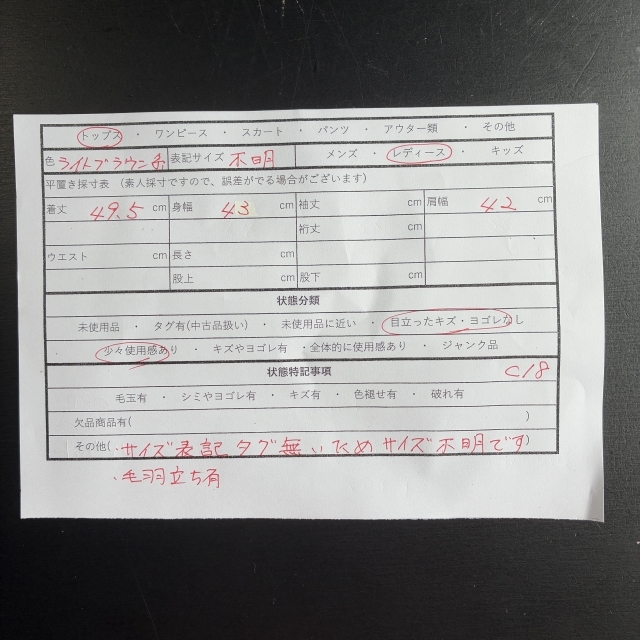 トップス ・ ワンピース ・ スカート ・ パンツ ・ アウター類 ・ その他
色 ライトブラウン系 表記サイズ 不明 メンズ ・ レディース ・ キッズ
平置き採寸表 (素人採寸ですので、誤差がでる場合がございます)
着丈 49.5 cm 身幅 43 cm 袖丈 cm 肩幅 42 cm
裄丈 cm
ウエスト cm 長さ cm
股上 cm 股下 cm
状態分類
未使用品 ・ タグ有(中古品扱い) ・ 未使用品に近い ・ 目立ったキズ・ヨゴレなし
・ 少々使用感あり ・ キズやヨゴレ有 ・全体的に使用感あり ・ ジャンク品
状態特記事項 C18
毛玉有 ・ シミやヨゴレ有 ・ キズ有 ・ 色褪せ有 ・ 破れ有
欠品商品有( )
その他( ・サイズ表記タグ無いためサイズ不明です)
・毛羽立ち有